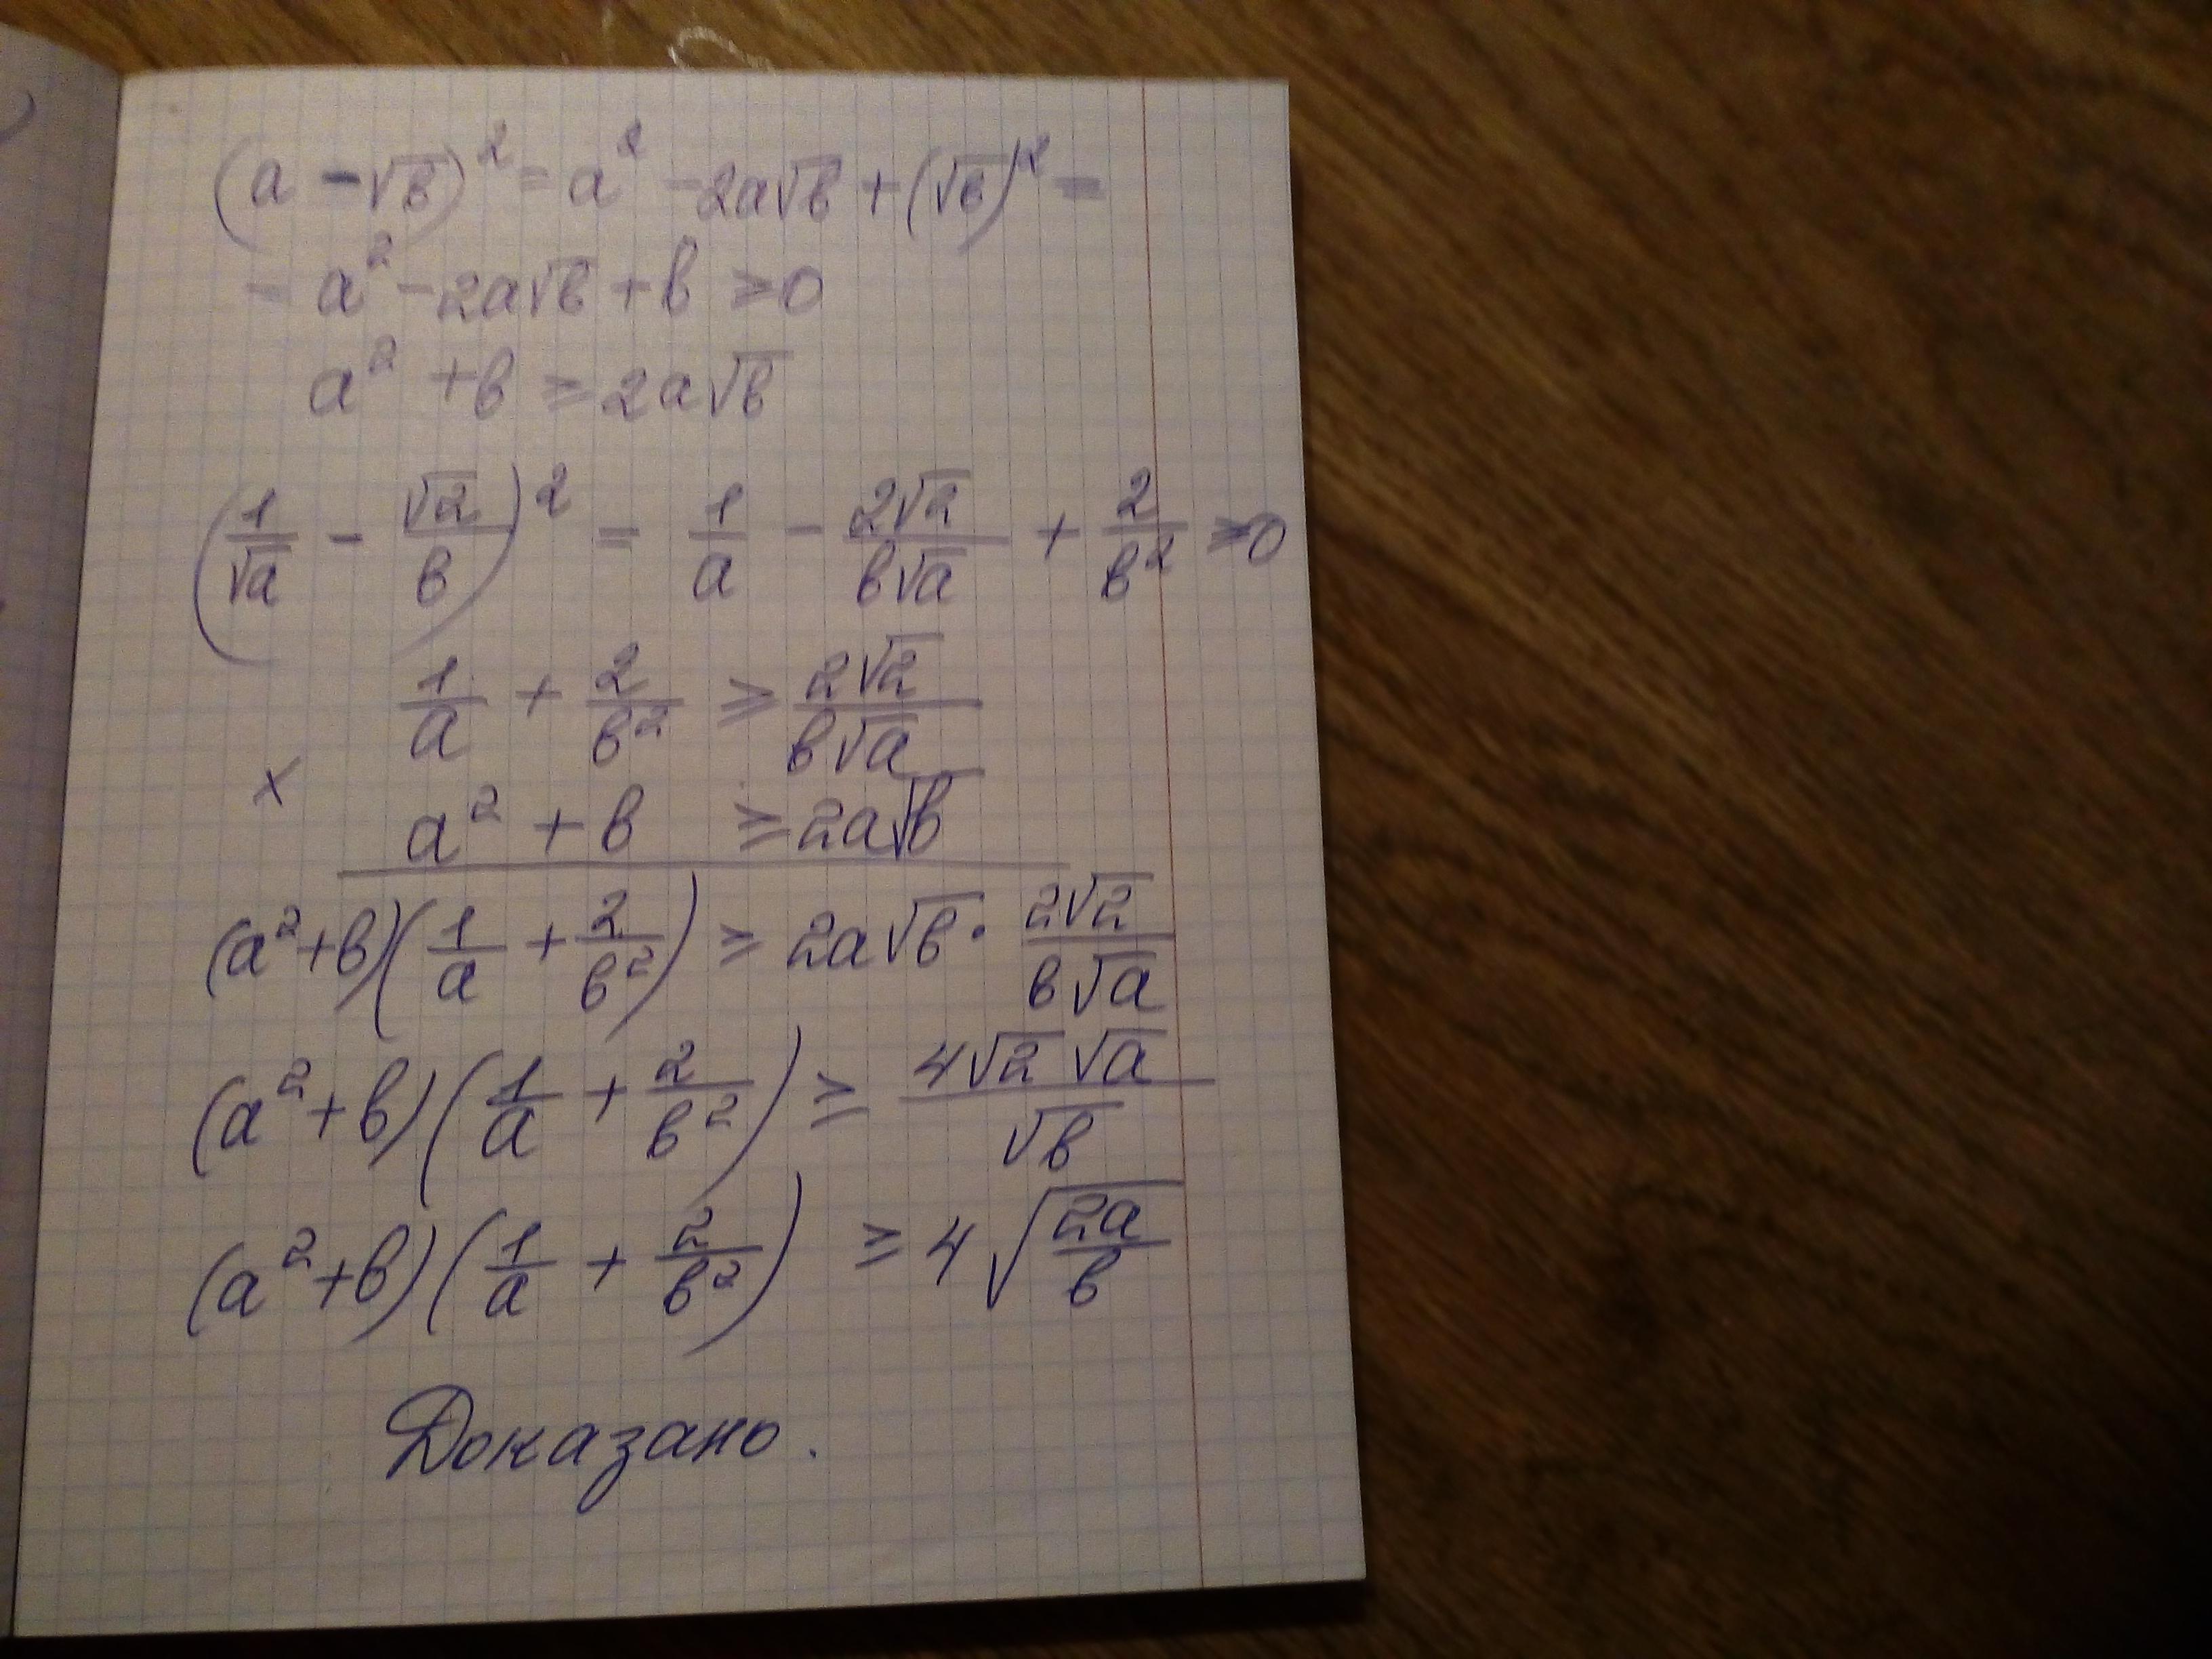 (a - √b)² = a² - 2a√b + (√b)² =
= a² - 2a√b + b ≥ 0
a² + b ≥ 2a√b
(1/√a - √2/b)² = 1/a - 2√2/(b√a) + 2/b² ≥ 0
1/a + 2/b² ≥ 2√2/(b√a)
×
a² + b ≥ 2a√b
(a² + b)(1/a + 2/b²) ≥ 2a√b · 2√2/(b√a)
(a² + b)(1/a + 2/b²) ≥ 4√2 √a/√b
(a² + b)(1/a + 2/b²) ≥ 4√(2a/b)
Доказано.